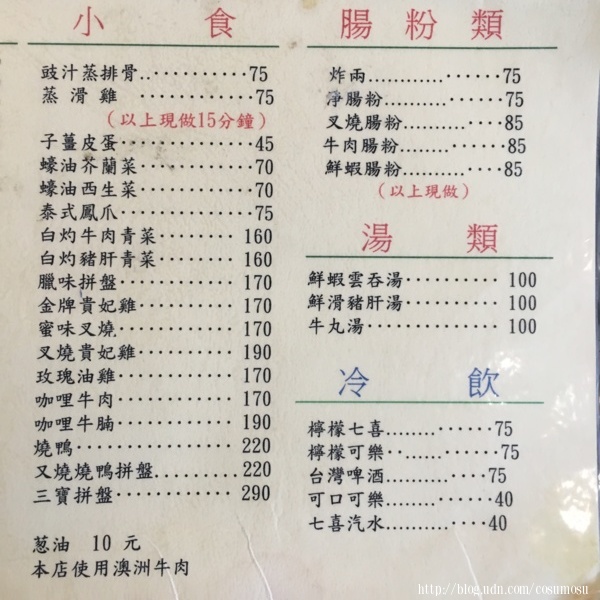 小 食
豉汁蒸排骨..··········75
蒸滑雞 ············75
(以上現做15分鐘)
子薑皮蛋··············45
蠔油芥蘭菜···········70
蠔油西生菜···········70
泰式鳳爪··············75
白灼牛肉青菜········ 160
白灼豬肝青菜········ 160
臘味拼盤············ 170
金牌貴妃雞·········· 170
蜜味叉燒············ 170
叉燒貴妃雞·········· 190
玫瑰油雞············ 170
咖哩牛肉············ 170
咖哩牛腩············ 190
燒鴨················ 220
叉燒燒鴨拼盤.........220
三寶拼盤············ 290
葱油 10 元
本店使用澳洲牛肉
腸粉類
炸兩............······75
淨腸粉...........······75
叉燒腸粉..........····85
牛肉腸粉........·····85
鮮蝦腸粉.........····85
(以上現做)
湯 類
鮮蝦雲吞湯·········· 100
鮮滑豬肝湯·········· 100
牛丸湯·············· 100
冷 飲
檸檬七喜........······75
檸檬可樂··......······75
台灣啤酒..........····75
可口可樂........······40
七喜汽水..........····40
http://blog.udn.com/cosumosu